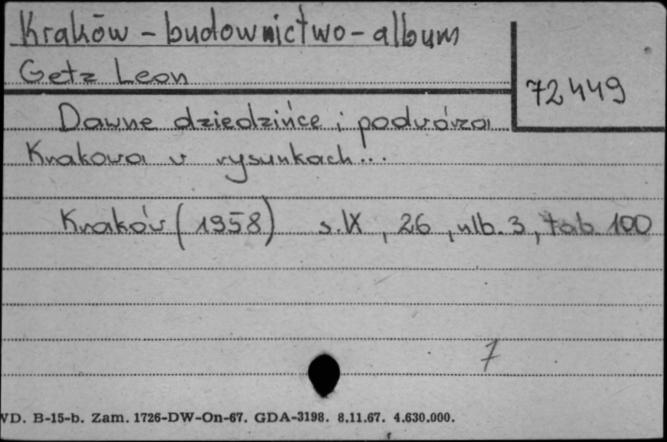 Kraków - budownictwo - album
Getz Leon
72449
Dawne dziedzińce i podwórza
Krakowa w rysunkach...
Kraków (1958) s. IX, 26, nlb. 3, tab. 100
7
WD. B-15-b. Zam. 1726-DW-On-67. GDA-3198. 8.11.67. 4.630.000.